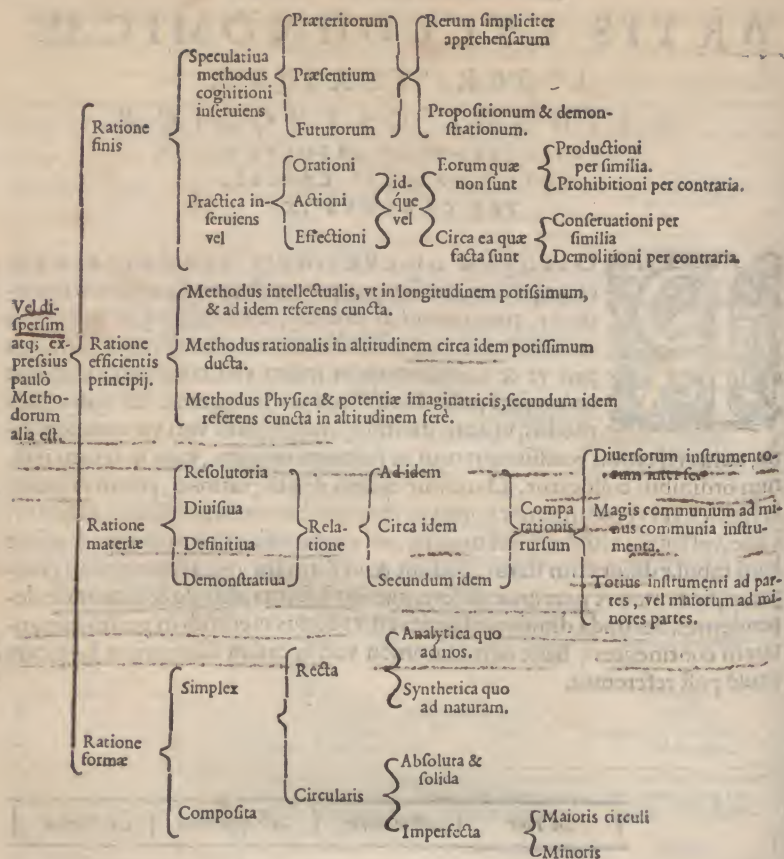 Vel di-
ſperſim
atq; ex-
preſsius
paulò
Metho-
dorum
alia eſt.
Ratione
finis
Speculatiua
methodus
cognitioni
inſeruiens
Præteritorum
Præſentium
Futurorum
Rerum ſimpliciter
apprehenſarum
Propoſitionum & demon-
ſtrationum.
Practica in-
ſeruiens
vel
Orationi
Actioni
Effectioni
id-
que
vel
Eorum quæ
non ſunt
Productioni
per ſimilia.
Prohibitioni per contraria.
Circa ea quæ
facta ſunt
Conſeruationi per
ſimilia
Demolitioni per contraria.
Ratione
efficientis
principij.
Methodus intellectualis, vt in longitudinem potiſsimum,
& ad idem referens cuncta.
Methodus rationalis in altitudinem circa idem potiſſimum
ducta.
Methodus Phyſica & potentiæ imaginatricis, ſecundum idem
referens cuncta in altitudinem ferè.
Ratione
materiæ
Reſolutoria
Diuiſiua
Definitiua
Demonſtratiua
Rela-
tione
Ad idem
Circa idem
Secundum idem
Compa
rationis
rurſum
Diuerſorum inſtrumento-
rum inter ſe.
Magis communium ad mi-
nus communia inſtru-
menta.
Totius inſtrumenti ad par-
tes, vel maiorum ad mi-
nores partes.
Ratione
formæ
Simplex
Compoſita
Recta
Analytica quo
ad nos.
Synthetica quo
ad naturam.
Circularis
Abſoluta &
ſolida
Imperfecta
Maioris circuli
Minoris